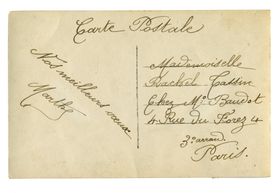 Carte Postale
Nos meilleurs vœux
Marthe
Mademoiselle
Rachel Cassin
Chez Mr Baudet
4 Rue du Forez 4
3e arrond
Paris.